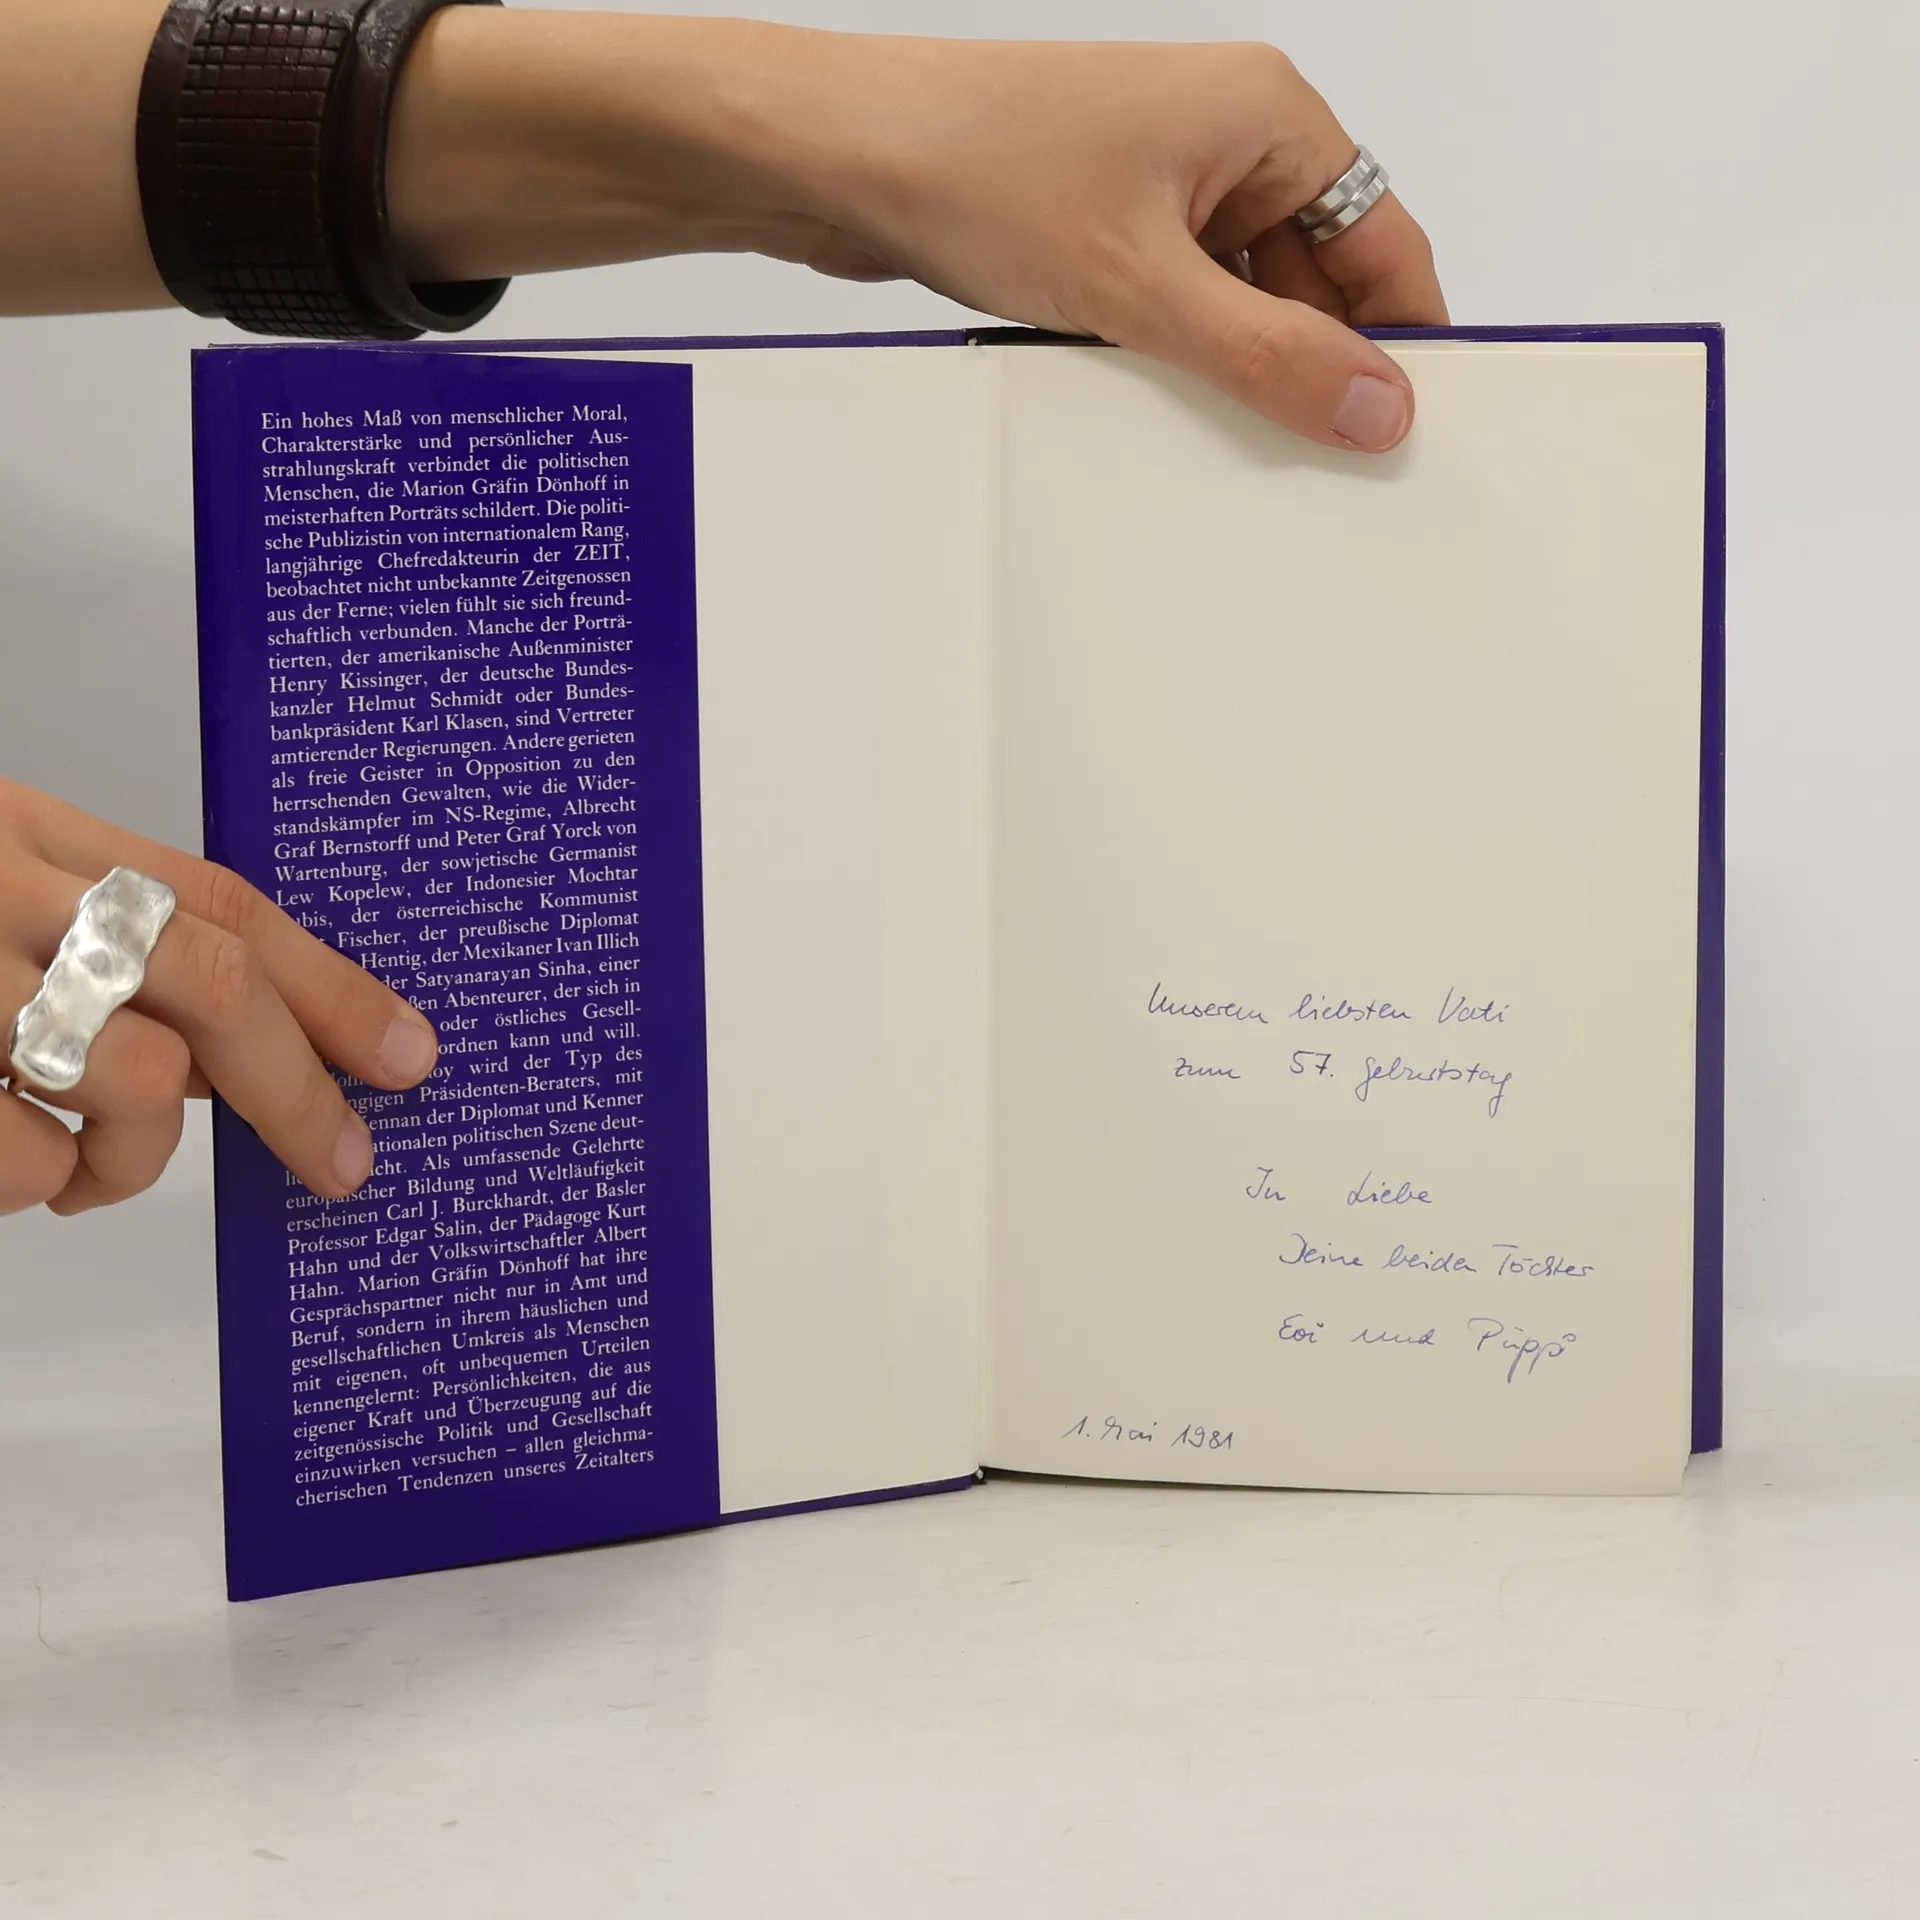 Ein hohes Maß von menschlicher Moral,
Charakterstärke und persönlicher Aus-
strahlungskraft verbindet die politischen
Menschen, die Marion Gräfin Dönhoff in
meisterhaften Porträts schildert. Die politi-
sche Publizistin von internationalem Rang,
langjährige Chefredakteurin der ZEIT,
beobachtet nicht unbekannte Zeitgenossen
aus der Ferne; vielen fühlt sie sich freund-
schaftlich verbunden. Manche der Porträ-
tierten, der amerikanische Außenminister
Henry Kissinger, der deutsche Bundes-
kanzler Helmut Schmidt oder Bundes-
bankpräsident Karl Klasen, sind Vertreter
amtierender Regierungen. Andere gerieten
als freie Geister in Opposition zu den
herrschenden Gewalten, wie die Wider-
standskämpfer im NS-Regime, Albrecht
Graf Bernstorff und Peter Graf Yorck von
Wartenburg, der sowjetische Germanist
Lew Kopelew, der Indonesier Mochtar
ubis, der österreichische Kommunist
Fischer, der preußische Diplomat
Hentig, der Mexikaner Ivan Illich
der Satyanarayan Sinha, einer
ßen Abenteurer, der sich in
oder östliches Gesell-
ordnen kann und will.
loy wird der Typ des
ngigen Präsidenten-Beraters, mit
ennan der Diplomat und Kenner
ationalen politischen Szene deut-
icht. Als umfassende Gelehrte
europäischer Bildung und Weltläufigkeit
erscheinen Carl J. Burckhardt, der Basler
Professor Edgar Salin, der Pädagoge Kurt
Hahn und der Volkswirtschaftler Albert
Hahn. Marion Gräfin Dönhoff hat ihre
Gesprächspartner nicht nur in Amt und
Beruf, sondern in ihrem häuslichen und
gesellschaftlichen Umkreis als Menschen
mit eigenen, oft unbequemen Urteilen
kennengelernt: Persönlichkeiten, die aus
eigener Kraft und Überzeugung auf die
zeitgenössische Politik und Gesellschaft
einzuwirken versuchen – allen gleichma-
cherischen Tendenzen unseres Zeitalters
Unserem liebsten Vati
zum 57. Geburtstag
In Liebe
Deine beiden Töchter
und
1. Mai 1981